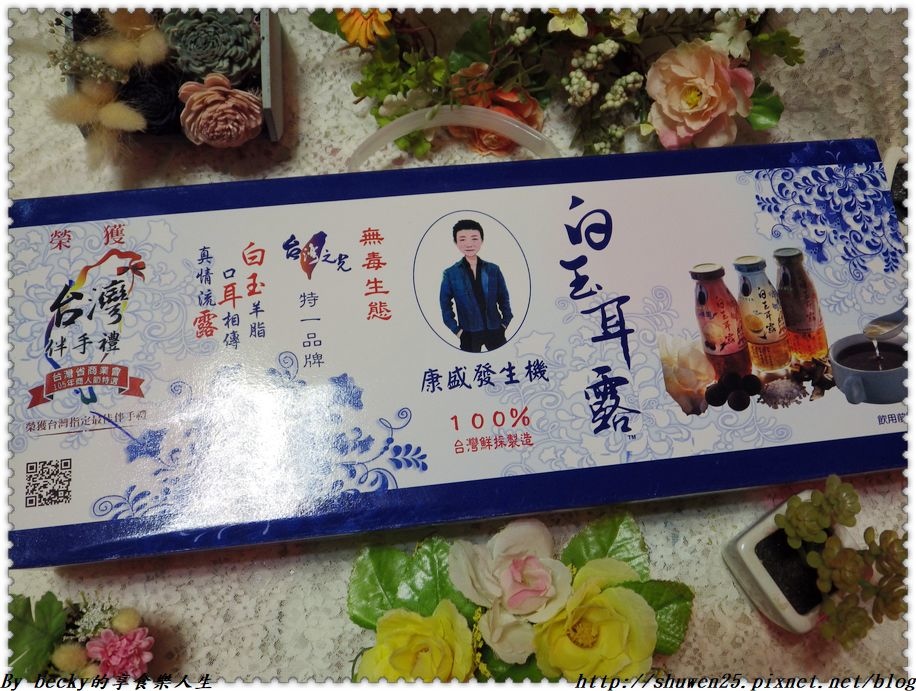 榮獲
台灣
伴手禮
台灣省商業會
105年商人節特選
榮獲台灣指定最佳伴手禮
白玉羊脂
口耳相傳
真情流露
台灣之光
特一品牌
無毒生態
康盛發生機
100%
台灣鮮採製造
白玉耳露
TM
白玉耳露
白玉耳露
飲用前
By becky的享食樂人生
http://shuwen25.pixnet.net/blog